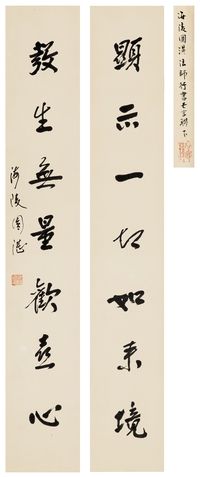 顯示一切如来境
發生無量歡喜心
海陵圓湛
海陵圓湛法師行書七言聯